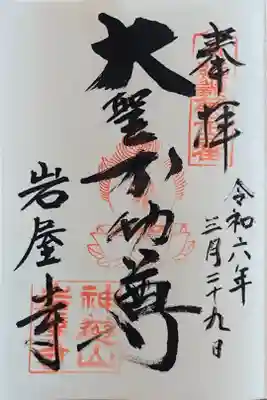 奉拝
令和六年
三月二十九日
大聖不動尊
岩屋寺